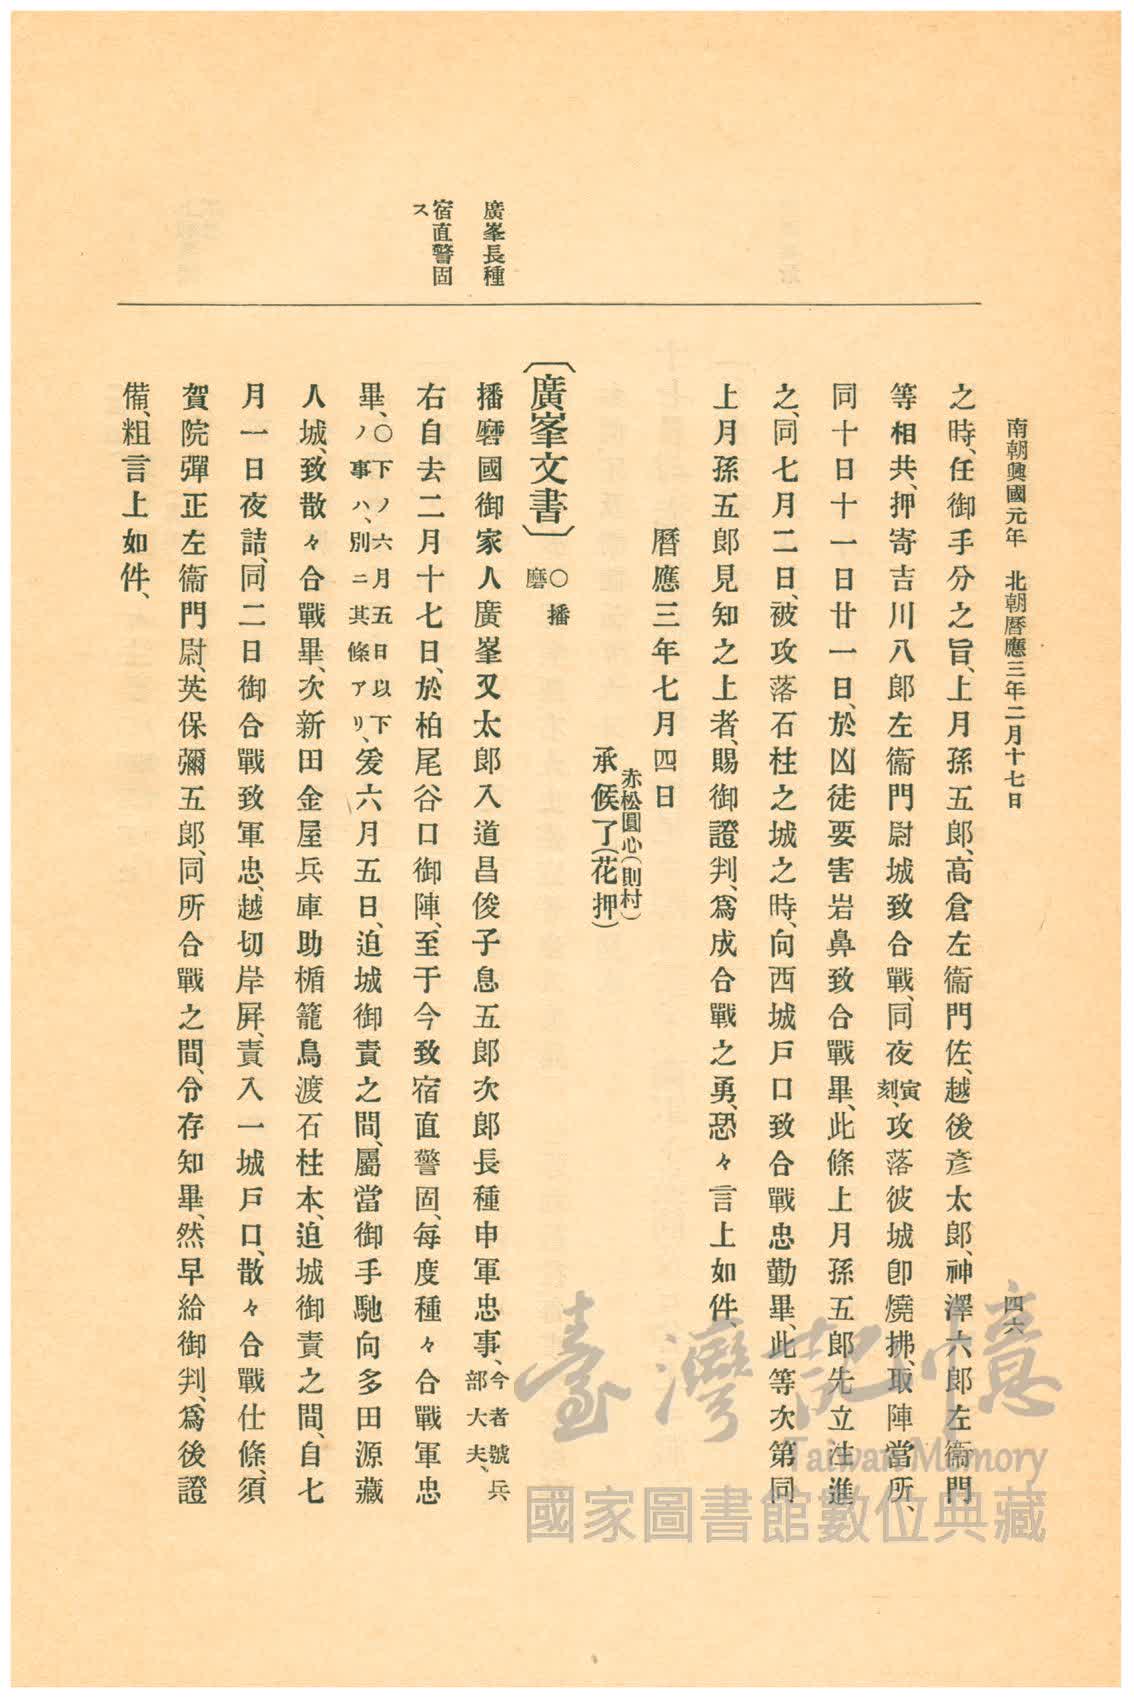 南朝興國元年　北朝曆應三年二月十七日
四六
之時、任御手分之旨、上月孫五郎、高倉左衞門佐、越後彥太郎、神澤六郎左衞門
等相共、押寄吉川八郎左衞門尉城致合戰、同夜寅刻、攻落彼城卽燒拂、取陣當所、
同十日十一日廿一日、於凶徒要害岩鼻致合戰畢、此條上月孫五郎先立注進
之、同七月二日、被攻落石柱之城之時、向西城戶口致合戰忠勤畢、此等次第同
上月孫五郎見知之上者、賜御證判、爲成合戰之勇、恐々言上如件、
曆應三年七月四日
赤松圓心(則村)
承候了(花押)
〔廣峯文書〕○播磨
廣峯長種
宿直警固
ス
播磨國御家人廣峯又太郎入道昌俊子息五郎次郎長種申軍忠事、今者號兵部大夫、
右自去二月十七日、於柏尾谷口御陣、至于今致宿直警固、每度種々合戰軍忠
畢、○下ノ六月五日以下ノ事ハ、別ニ其條アリ、爰六月五日、迫城御責之間、屬當御手馳向多田源藏
人城、致散々合戰畢、次新田金屋兵庫助楯籠鳥渡石柱本、迫城御責之間、自七
月一日夜詰、同二日御合戰致軍忠、越切岸屛、責入一城戶口、散々合戰仕條、須
賀院彈正左衞門尉、英保彌五郎、同所合戰之間、令存知畢、然早給御判、爲後證
備、粗言上如件、
臺灣記憶
Taiwan Memory
國家圖書館數位典藏